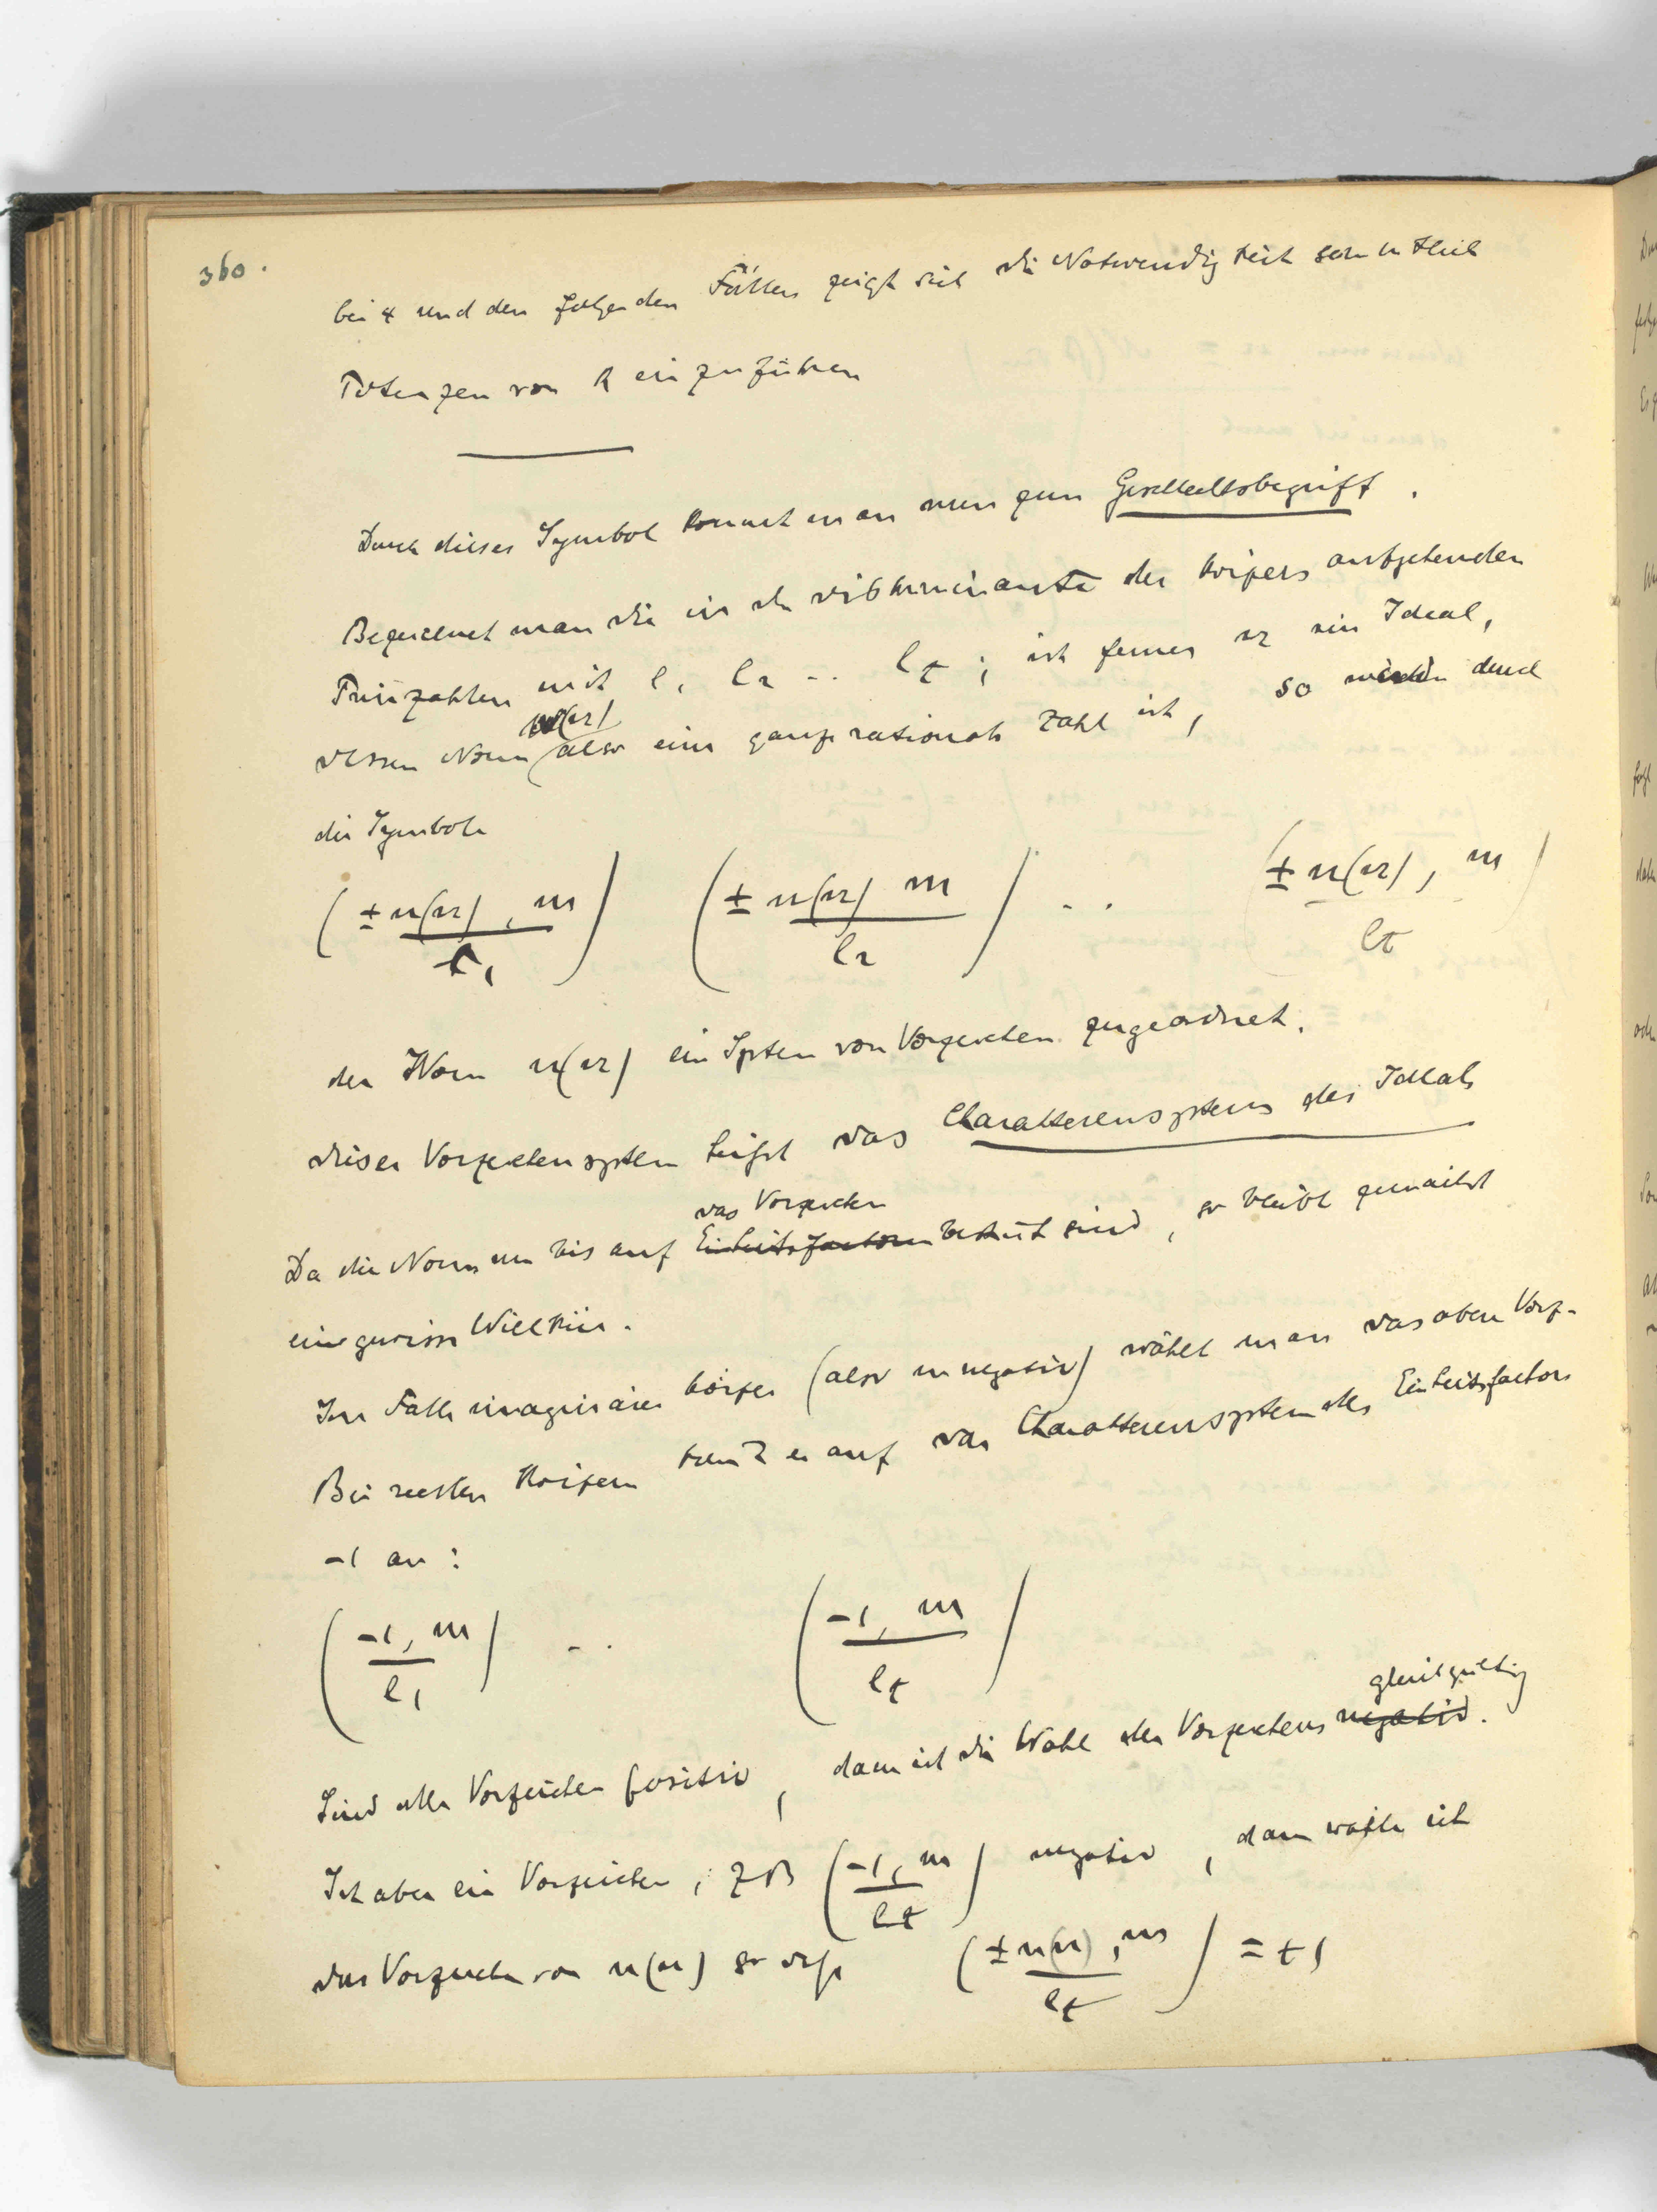 360.
bei 4 und den folgenden Fällen zeigt sich die Notwendigkeit sämtlich
Potenzen von k einzuführen
Durch dieses Symbol kommt man nun zum Geschlechtsbegriff.
Bezeichnet man die in der Diskriminante des Körpers aufgehenden
Primzahlen mit l1 l2 .. lt ; ist ferner a ein Ideal,
n(a)
dessen Norm also eine ganze rationale Zahl ist, so werden durch
die Symbole
(±n(a), m / l1) (±n(a) m / l2) .. (±n(a), m / lt)
der Norm n(a) ein System von Vorzeichen zugeordnet.
Dieses Vorzeichensystem heißt das Charakterensystem des Ideals
das Vorzeichen
Da die Normen nur bis auf Einheitsfactoren bestimmt sind, so bleibt zunächst
eine gewisse Willkür.
Im Falle imaginärer Körper (also m negativ) wählt man das obere Vorz-
Bei reellen Körpern kommt es auf das Charakterensystem des Einheitsfactors
-1 an:
(-1, m / l1) .. (-1, m / lt)
gleichgültig
Sind alle Vorzeichen positiv, dann ist die Wahl des Vorzeichens negativ.
Ist aber ein Vorzeichen, z B (-1, m / lt) negativ, dann wähle ich
das Vorzeichen von n(a) so daß (±n(a), m / lt) = +1